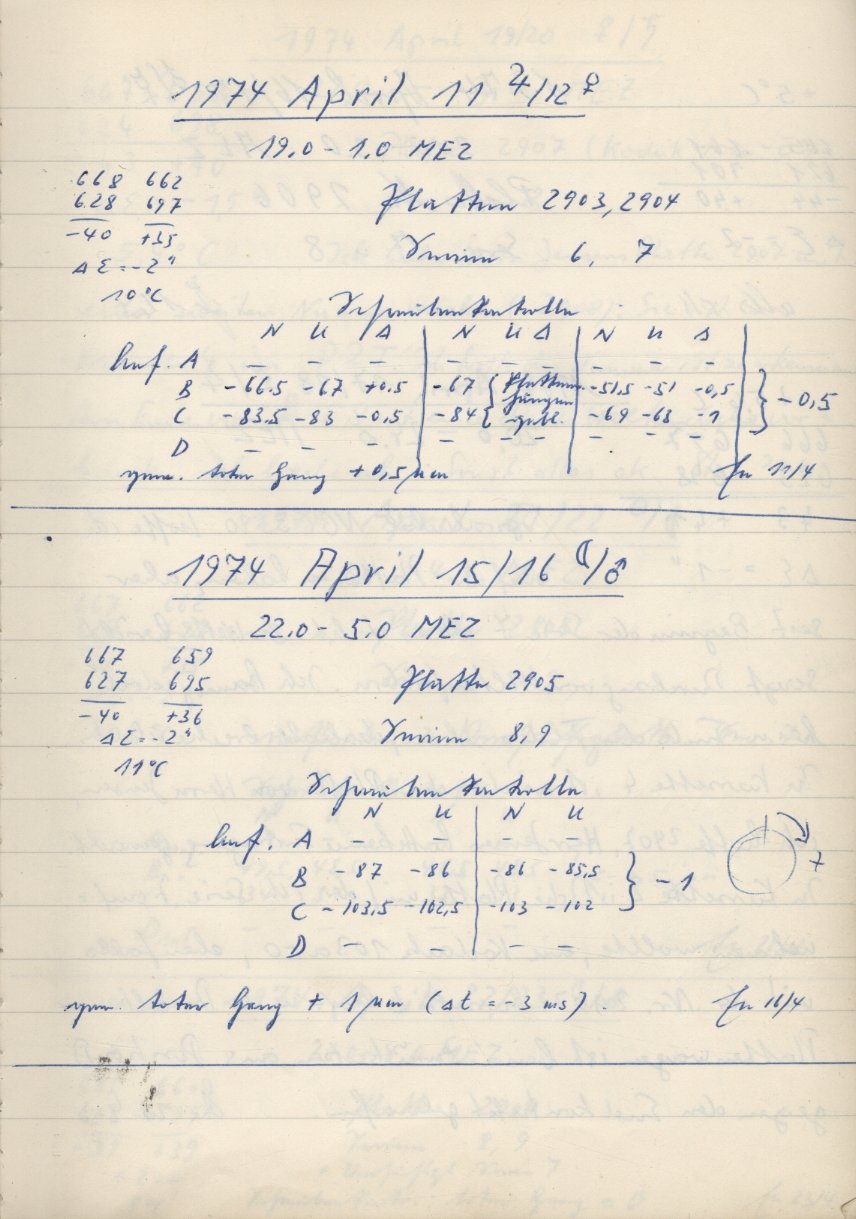 1974 April 11 ♃/12 ♀
19.0 - 1.0 MEZ
668 662
628 697
-40 +35
ΔΣ = -2"
10°C
Platten 2903, 2904
Serien 6, 7
Schraubenkontrolle
N U Δ N U Δ N U Δ
Auf. A - - - - - - - - -
B -66.5 -67 +0.5 -67 { Platten -51,5 -51 -0,5
C -83.5 -83 -0,5 -84 { -69 -68 -1 } -0,5
D - - - - - - - - -
gem. toter Gang +0,5 µm 11/4
1974 April 15/16 ☾/♂
22.0 - 5.0 MEZ
667 659
627 695
-40 +36
ΔΣ = -2"
11°C
Platte 2905
Serien 8,9
Schraubenkontrolle
N U N U
Auf. A - - - -
B -87 -86 -86 -85,5
C -103,5 -102,5 -103 -102 } -1
D - - - -
gem. toter Gang + 1 µm (Δt = -3 ms). 16/4